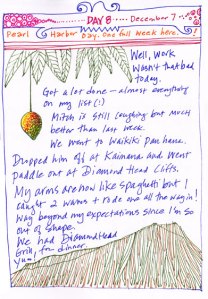 DAY 8 December 7
Pearl Harbor Day. One full week here!
Well, work
wasn't that bad
today.
Got a lot done - almost everything
on my list (!)
Mitch is still coughing but much
better than last week.
We went to Waikiki
Dropped him off at Kaimana and went
paddle out at Diamond Head Cliffs.
My arms are now like spaghetti but I
caught 2 waves + rode one all the way in!
Way beyond my expectations since I'm so
out of shape.
We had Diamond Head
Grill for dinner.
yum!